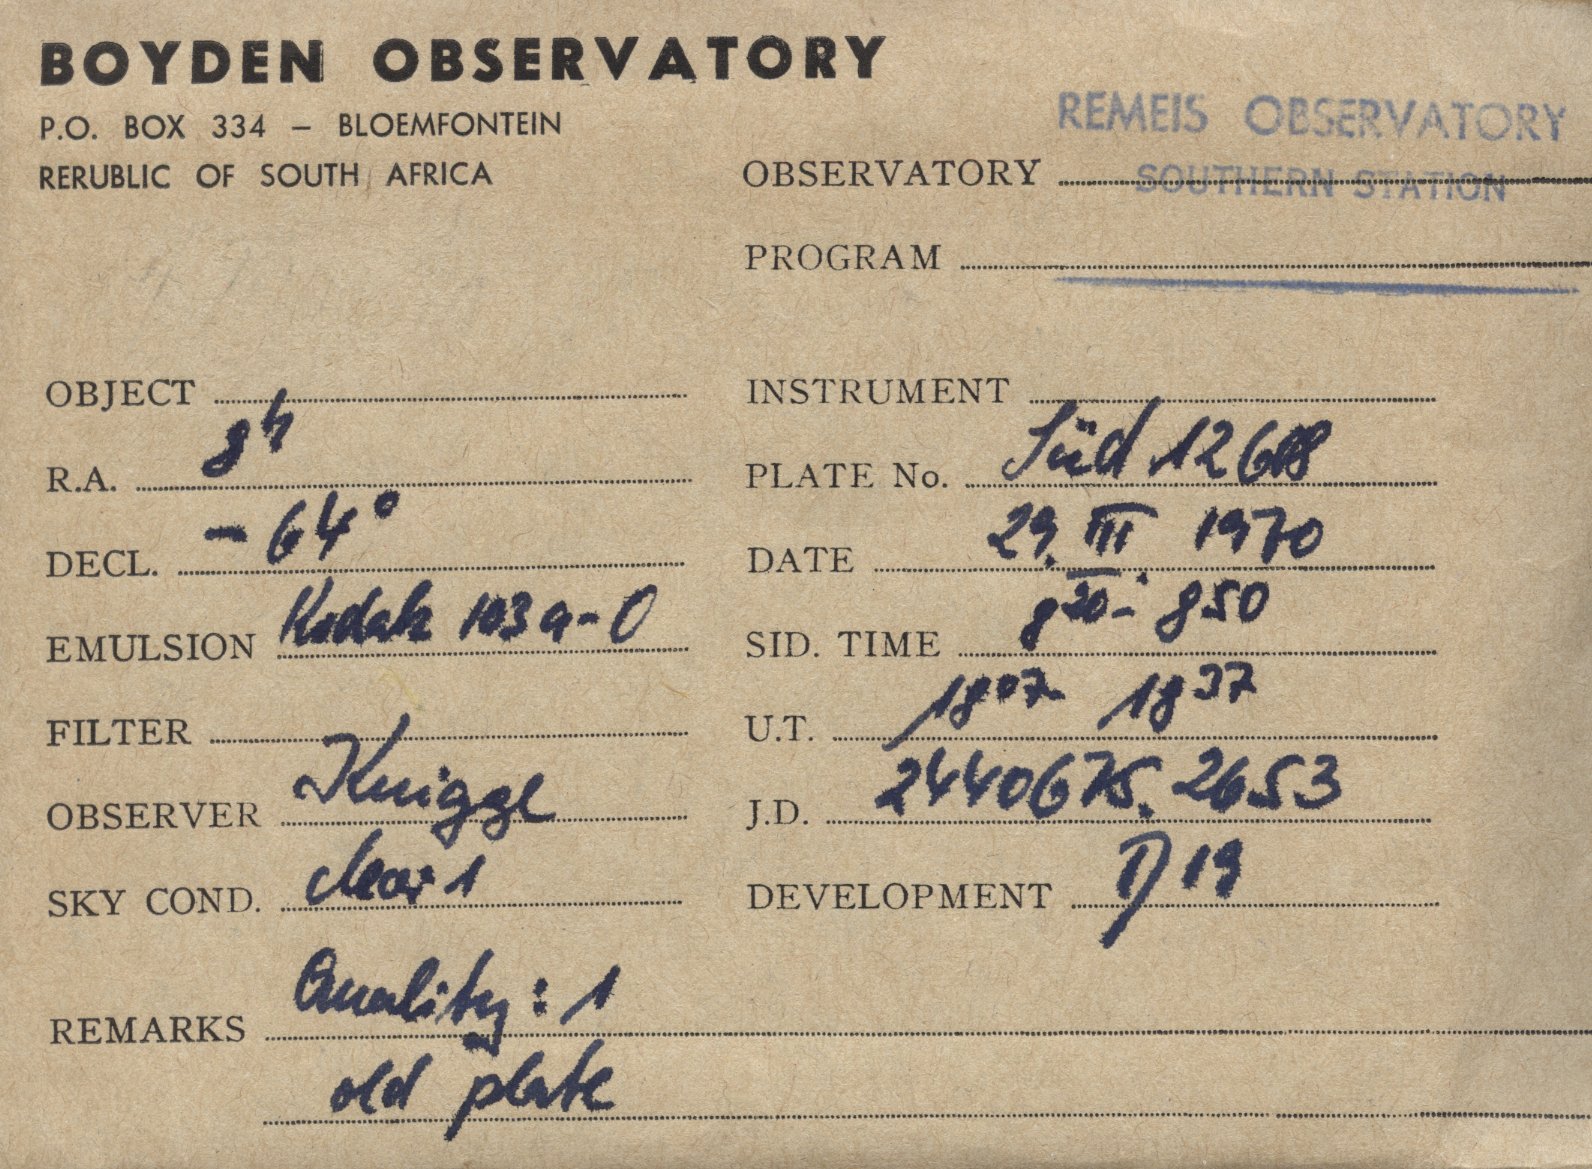 BOYDEN OBSERVATORY
P.O. BOX 334 – BLOEMFONTEIN
RERUBLIC OF SOUTH AFRICA
REMEIS OBSERVATORY
OBSERVATORY SOUTHERN STATION
PROGRAM
OBJECT
INSTRUMENT
R.A. 8h
PLATE No. Süd 12608
DECL. - 64°
DATE 29. III 1970
EMULSION Kodak 103a-O
SID. TIME 8 20 - 8 50
FILTER
U.T. 18 07 - 18 37
OBSERVER Knigge
J.D. 2440675.2653
SKY COND. clear 1
DEVELOPMENT D 19
REMARKS Quality: 1
old plate